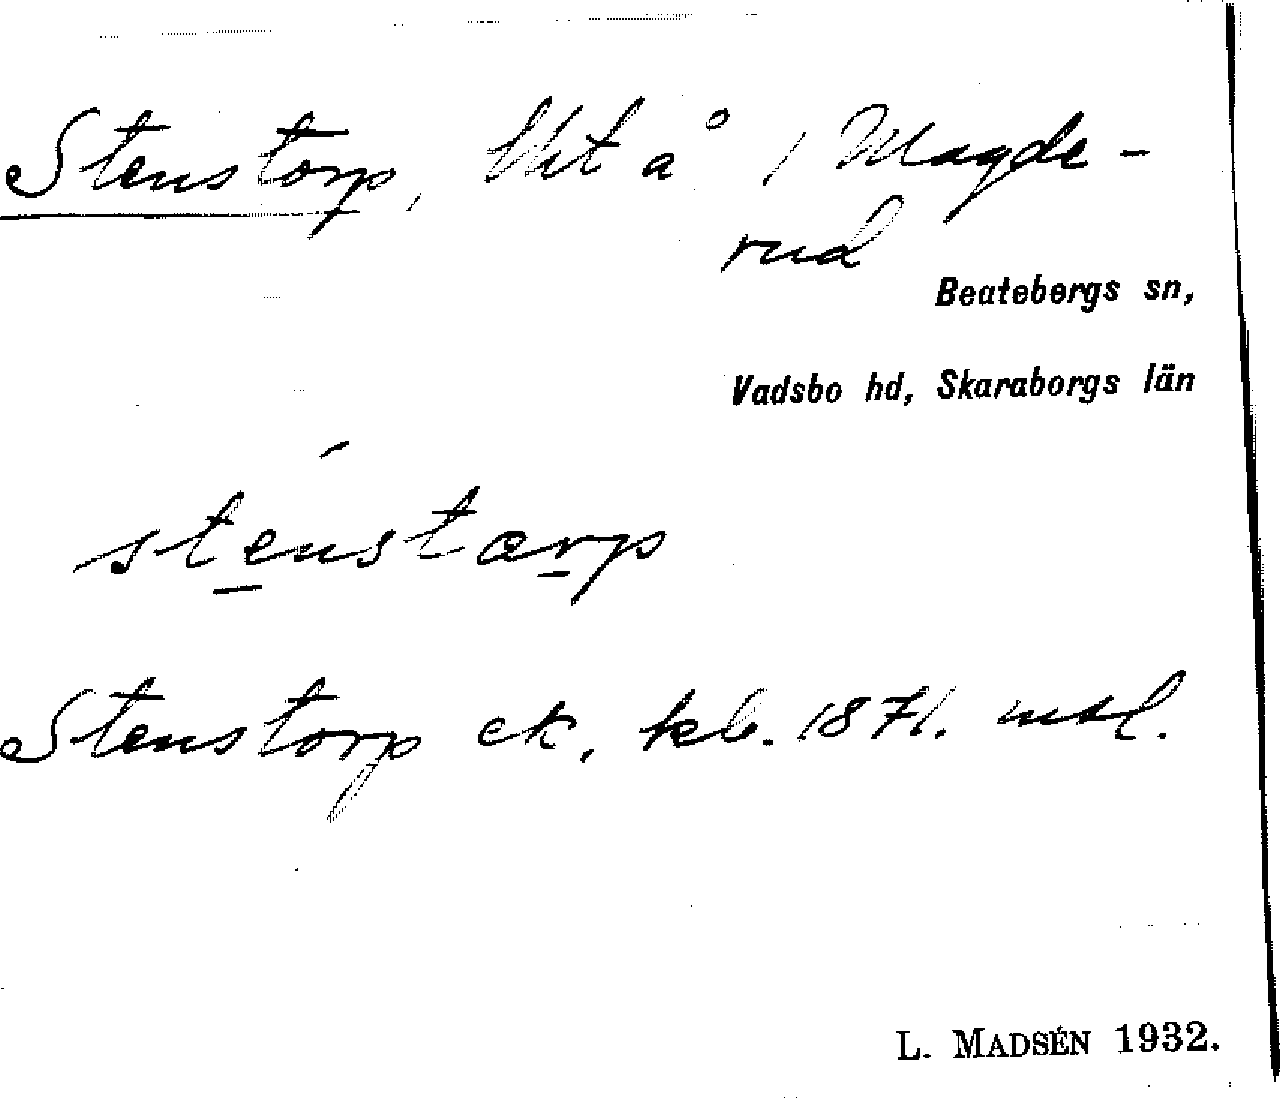 Stenstorp, lht å 1 Magde-
rud
Beatebergs sn,
Vadsbo hd, Skaraborgs län
stenstærp
Stenstorp ek. kb. 1871.
L. MADSÉN 1932.